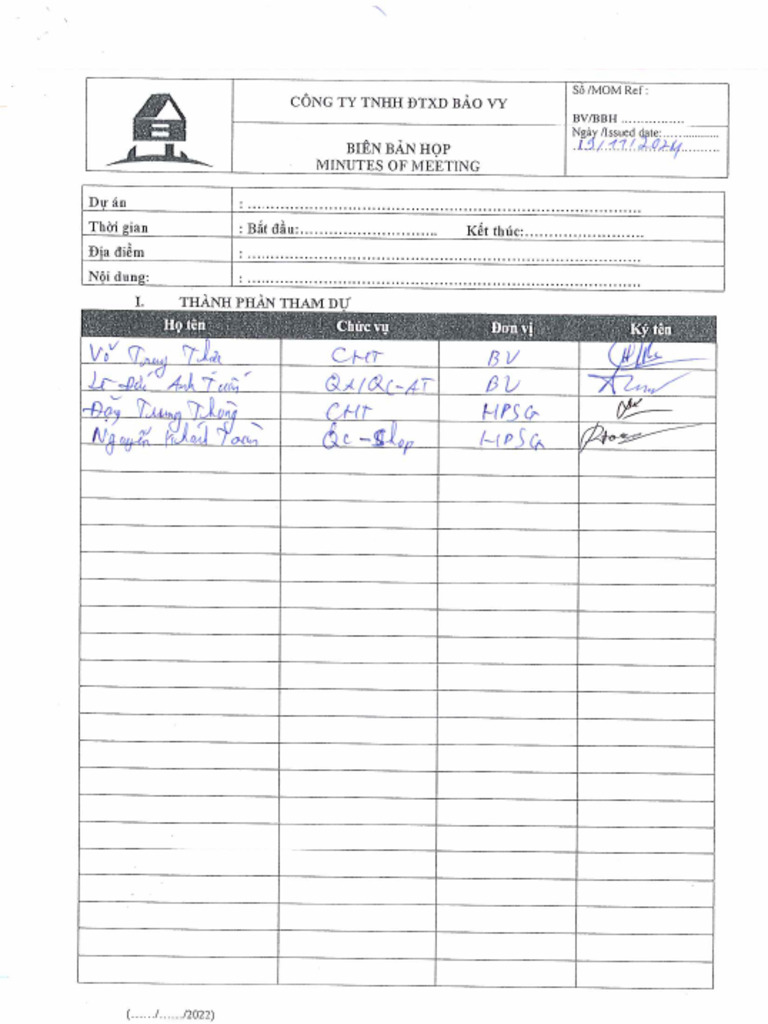 CÔNG TY TNHH ĐTXD BẢO VY
BIÊN BẢN HỌP
MINUTES OF MEETING
Số /MOM Ref :
BV/BBH ..................
Ngày /Issued date: ................
19/11/2024
Dự án : ......................................................................
Thời gian : Bắt đầu:........................... Kết thúc:........................
Địa điểm : ......................................................................
Nội dung: : ......................................................................
I. THÀNH PHẦN THAM DỰ
Họ tên Chức vụ Đơn vị Ký tên
Võ Trung CHT BV
Lê Anh Tuấn QA/QC-AT BV
Trung Thông CHT HPSG
Nguyễn Toàn QC-Shop HPSG
(....../....../2022)